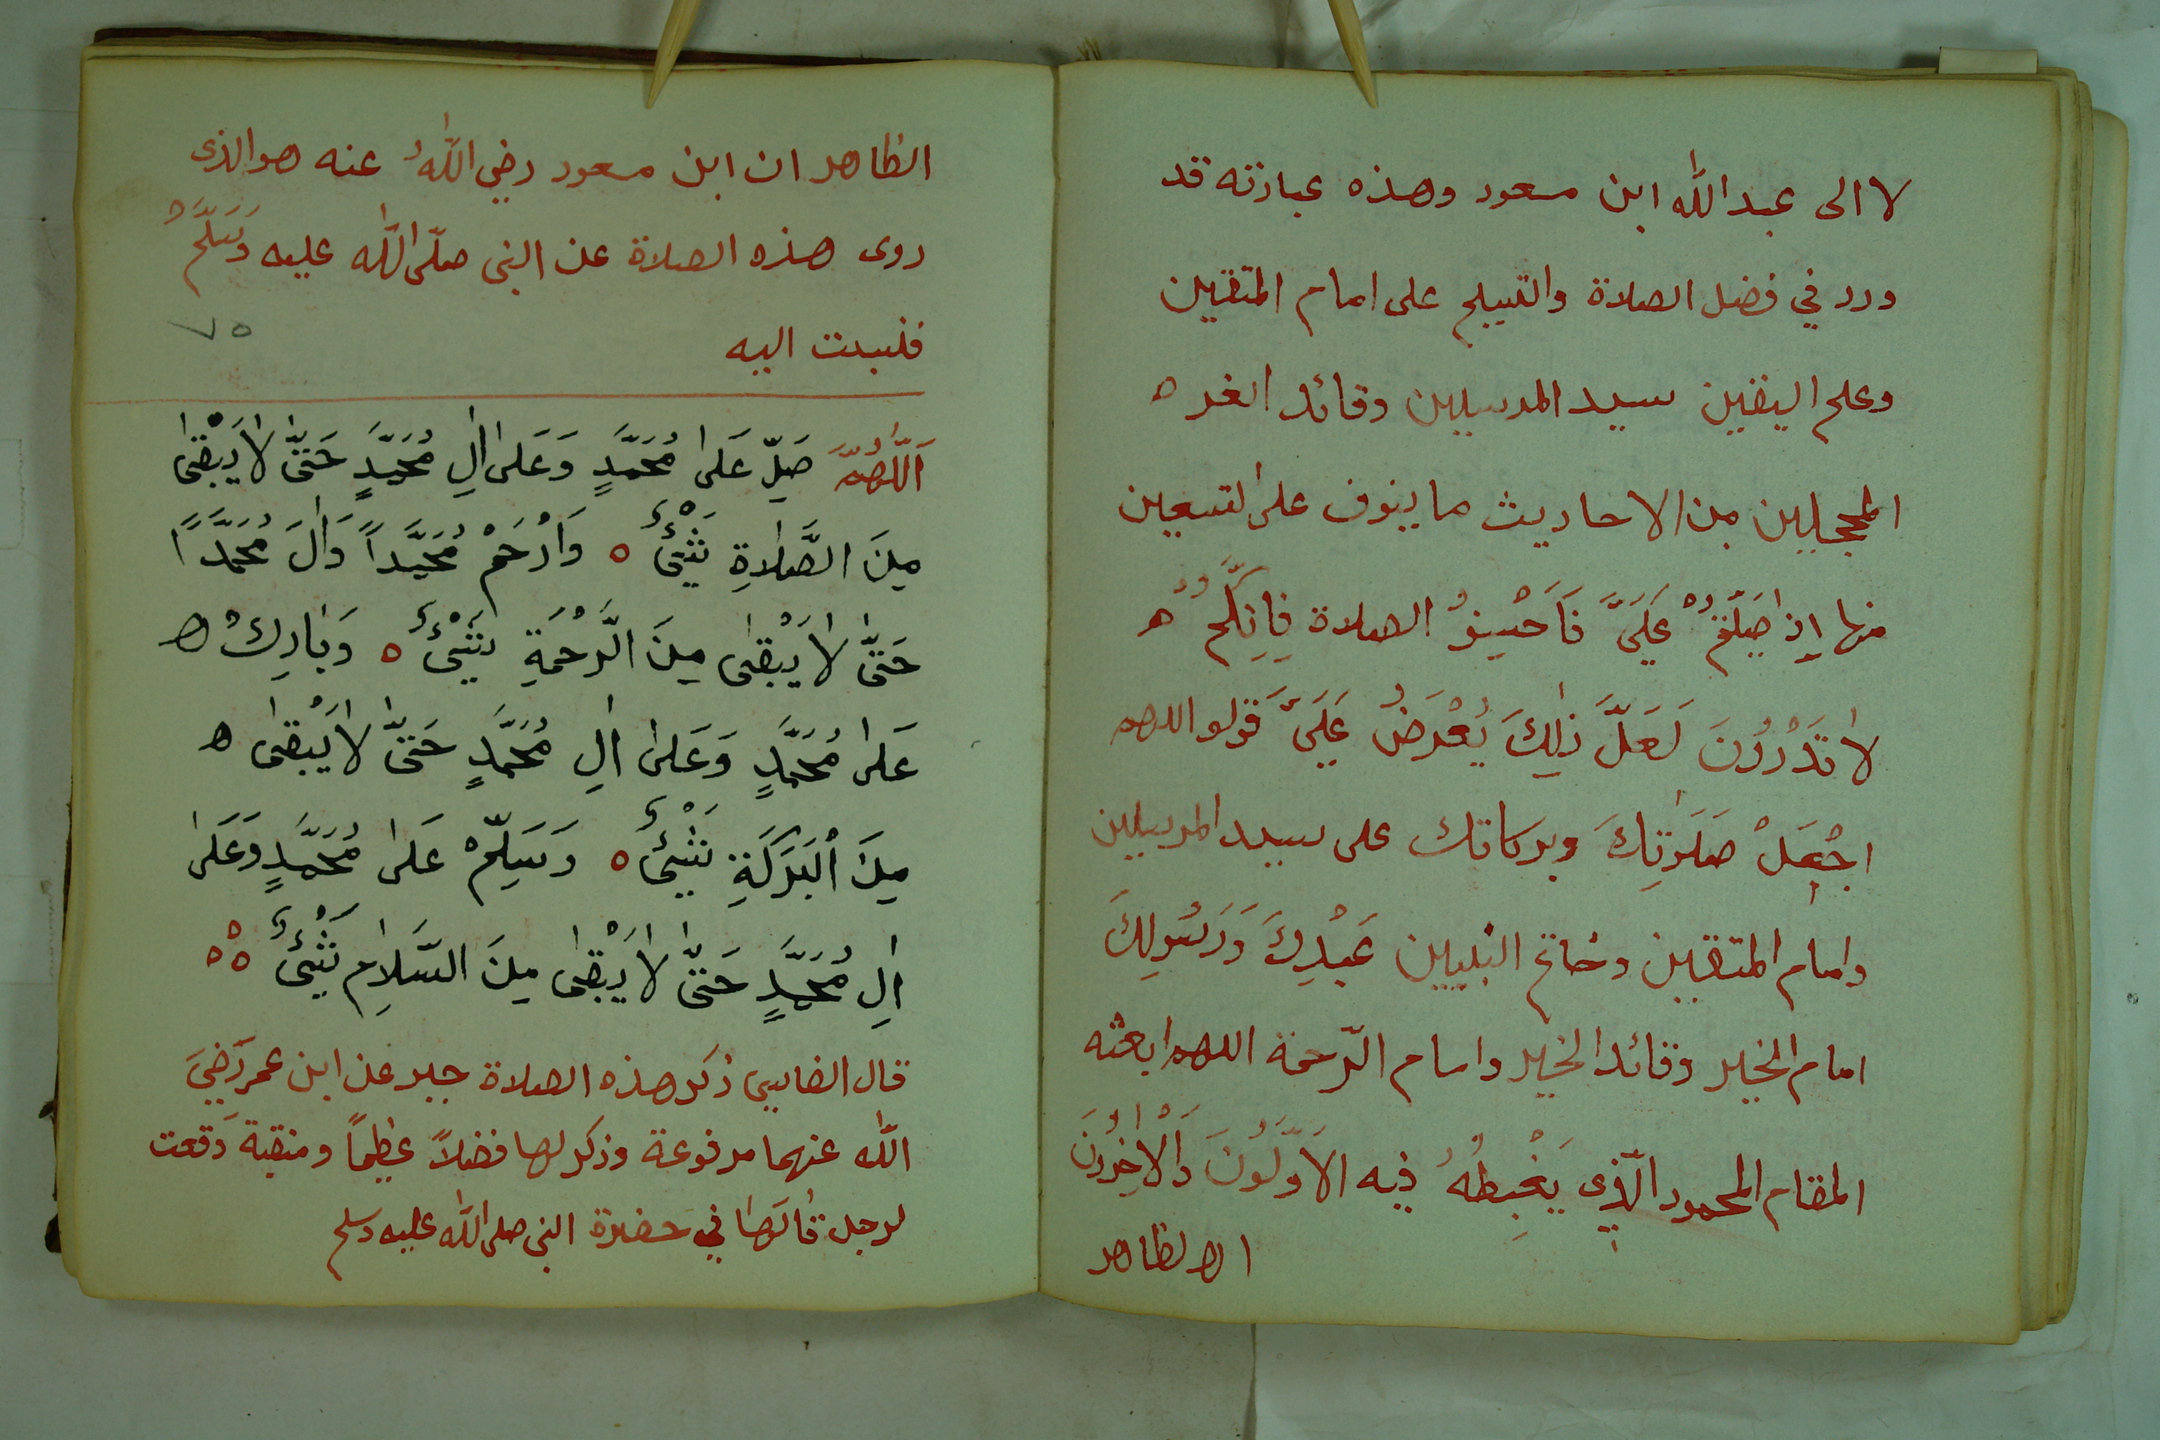 لا الى عبد الله ابن مسعود وهذه عبارته قد
ورد في فضل الصلاة والتسليم على امام المتقين
وعلم اليقين سيد المرسلين وقائد الغر ه
المحجلين من الاحاديث ما ينوف على التسعين
منها إِذا صَلَّيْتُمْ عَلَيَّ فَاَحْسِنُو الصلاة فَإِنَّكُمْ ه
لا تَدْرُونَ لَعَلَّ ذٰلِكَ يُعْرَضُ عَلَيَّ قولوا اللهم
اجْعَلْ صَلَوٰتِكَ وبركاتك على سيد المرسلين
وامام المتقين وخاتم النبيين عَبْدِكَ وَرَسُولِكَ
امام الخير وقائد الخير وامام الرّحمة اللهم ابعثه
المقام المحمود الّذي يَغْبِطُهُ فيه الاَوَّلُونَ وَالْاٰخِرُونَ
اه الظاهر
الظاهر ان ابن مسعود رضي اللّٰهُ عنه هو الذى
روى هذه الصلاة عن النبي صلّى اللّٰه عليه وَسَلَّمَ ه
فنسبت اليه
٧٥
اَللّٰهُمَّ صَلِّ عَلىٰ مُحَمَّدٍ وَعَلىٰ اٰلِ مُحَمَّدٍ حَتّٰى لاٰ يَبْقىٰ
مِنَ الصَّلاةِ شَيْءٌ ه وَارْحَمْ مُحَمَّداً وَاٰلَ مُحَمَّداً
حَتّٰى لاٰ يَبْقىٰ مِنَ الرَّحْمَةِ شَيْءٌ ه وَبٰارِكْ ه
عَلىٰ مُحَمَّدٍ وَعَلىٰ اٰلِ مُحَمَّدٍ حَتّٰى لاٰ يَبْقىٰ ه
مِنَ الْبَرَكَةِ شَيْءٌ ه وَسَلِّمْ عَلىٰ مُحَمَّدٍ وَعَلىٰ
اٰلِ مُحَمَّدٍ حَتّٰى لاٰ يَبْقىٰ مِنَ السَّلاٰمِ شَيْءٌ ه ه
قال الفاسي ذكر هذه الصلاة جبر عن ابن عمر رَضِيَ
اللّٰه عنهما مرفوعة وذكر لها فضلاً عظيماً ومنقبة وَقعت
لرجل قٰالَهٰا في حضرة النبي صلى اللّٰه عليه وسلم